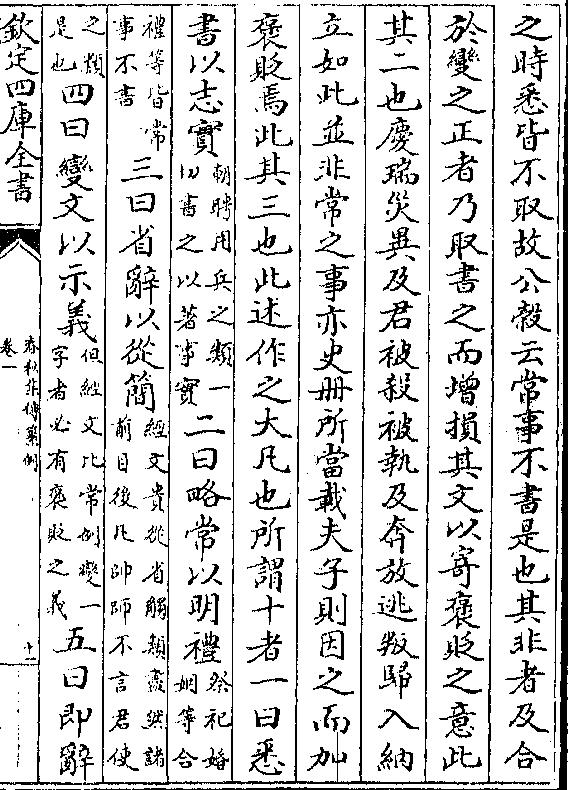 之時悉皆不取故公穀云常事不書是也其非者及合
於變之正者乃取書之而增損其文以寄褒貶之意此
其二也慶瑞災異及君被殺被執及奔放逃叛歸入納
立如此並非常之事亦史冊所當載夫子則因之而加
褒貶焉此其三也此述作之大凡也所謂十者一曰悉
書以志實朝聘用兵之類一切書之以著事實二曰略常以明禮祭祀婚姻等合
禮等皆常事不書三曰省辭以從簡經文貴從省觸類盡然諸前目後凡帥師不言君使
之類是也四曰變文以示義但經文比常例變一字者必有褒貶之義五曰即辭
欽定四庫全書
春秋集傳纂例
卷一
十二